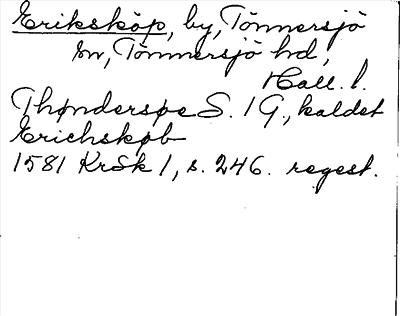 Eriksköp, by, Tönnersjö
sn, Tönnersjö hd,
Hall. l.
Thønderspe S. 1 G., kaldet
Erichskøb
1581 KrSk 1, s. 246. regest.